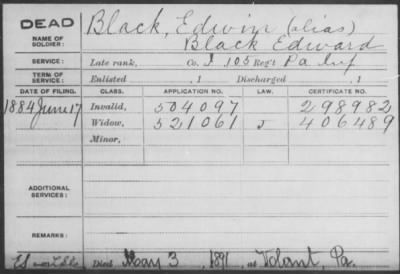 DEAD
NAME OF SOLDIER:
Black, Edwin (alias)
Black Edward
SERVICE: Late rank, Co. I 105 Reg't Pa Inf
TERM OF SERVICE: Enlisted , 1 Discharged , 1
DATE OF FILING. CLASS. APPLICATION NO. LAW. CERTIFICATE NO.
1884 June 17 Invalid, 504097 298982
Widow, 521061 J 406489
Minor,
ADDITIONAL SERVICES:
REMARKS:
Died May 3, 1891, at Volant, Pa.